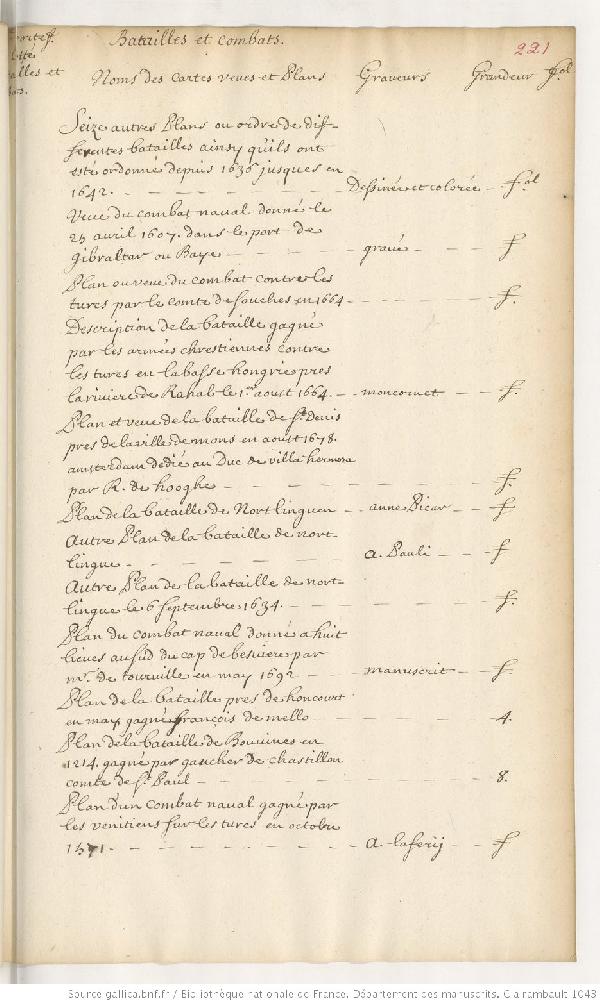 Batailles et combats.
221
alles et
Noms des cartes veues et Plans Graveurs Grandeur fol
Seize autres Plans ou ordre de dif-
ferentes batailles ainsy quils ont
esté ordonné depuis 1636 jusques en
1642. Dessinée et colorée fol
Veue du combat naval donné le
25 avril 1607. dans le port de
Gibraltar ou Baye gravé f
Plan ou veue du combat contre les
turcs par le comte de souches en 1664 f.
Description de la bataille gagné
par les armées chrestiennes contre
les turcs en la basse hongrie pres
la riviere de Rahab le 1er aoust 1664. moncornet f.
Plan et veue de la bataille de St Denis
pres de la ville de mons en aoust 1678.
amsterdam dedié au Duc de villa hermosa
par R. de hooghe f.
Plan de la bataille de Nortlinguen anne Picar f
Autre Plan de la bataille de nort-
lingue A. Pauli f
Autre Plan de la bataille de nort-
lingue le 6 septembre 1634. f.
Plan du combat naval donné a huit
lieues au sud du cap de besiviere par
mr. de tourville en may 1692 manuscrit f
Plan de la bataille pres de honcourt
en may gagné françois de mello 4.
Plan de la bataille de Bouvines en
1214. gagné par gaucher de chastillon
comte de St Paul 8.
Plan d'un combat naval gagné par
les venitiens sur les turcs en octobre
1571. A. laferij f
Source gallica.bnf.fr / Bibliothèque nationale de France. Département des manuscrits. Clairambault 1043